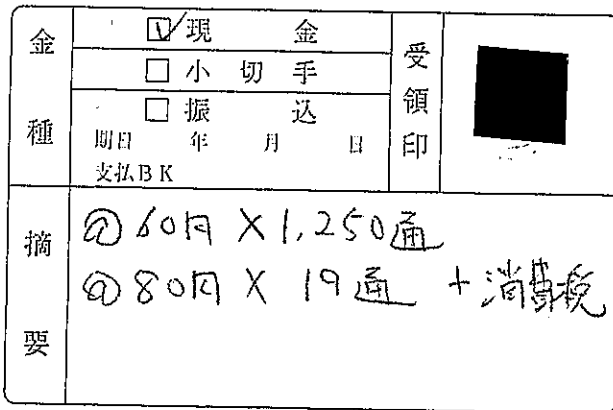 金種
☑現金
□小切手
□振込
期日 年 月 日
支払BK
受領印
摘要
@60円×1,250通
@80円×19通 +消費税